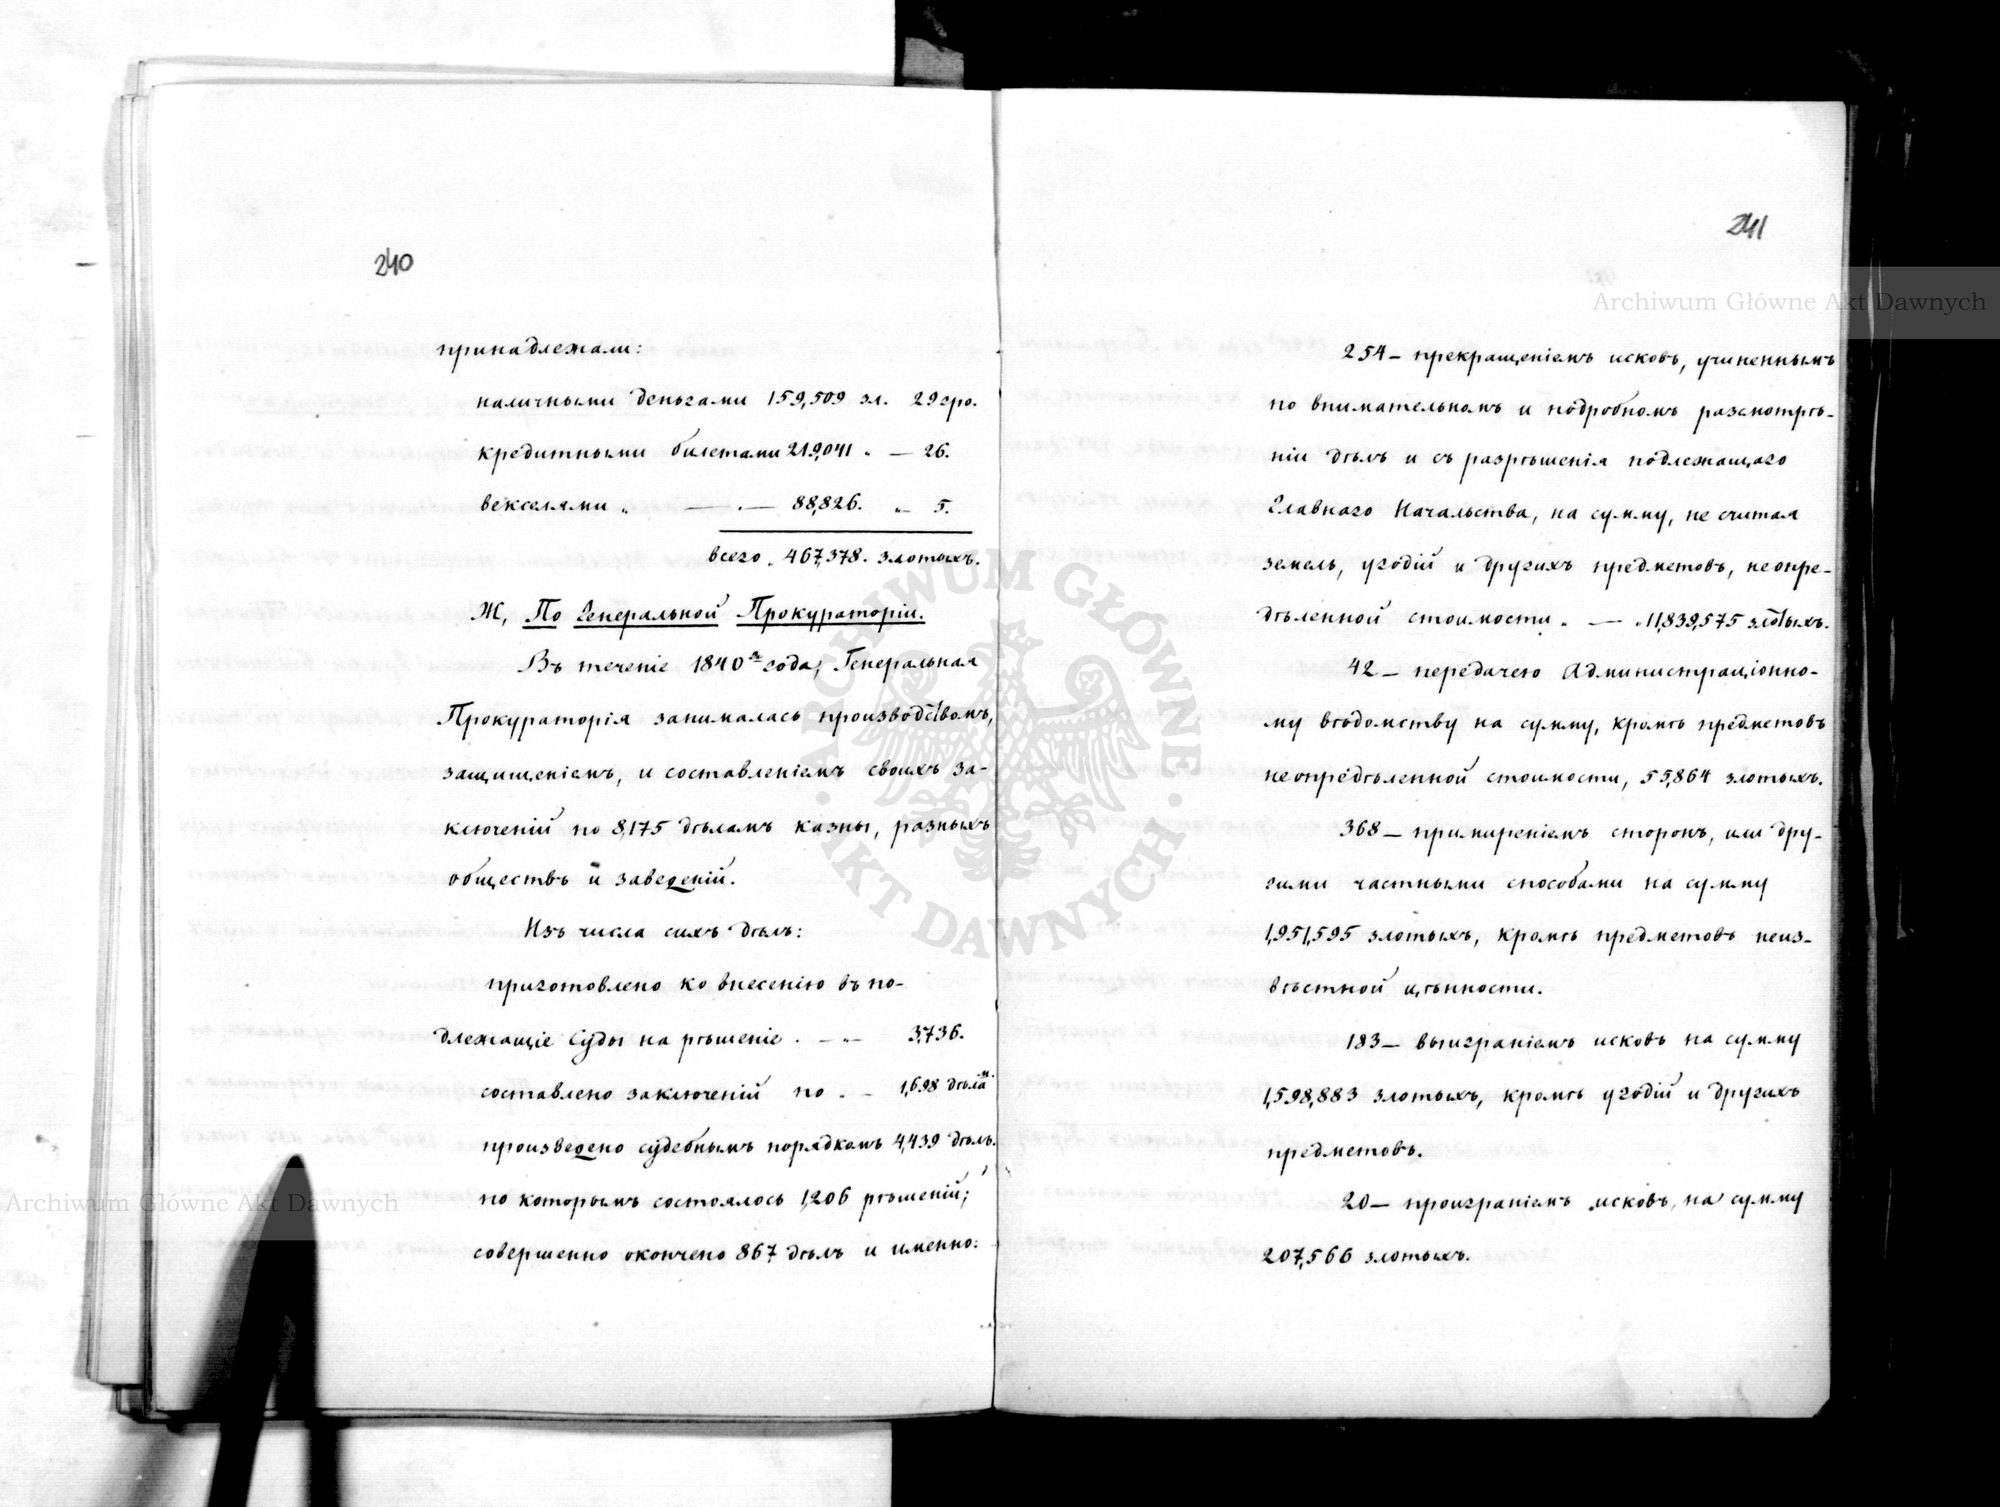 240
принадлежали:
наличными деньгами 159,509 зл. 29 гро.
кредитными билетами 219,041 „ — 26.
векселями „ — — 88,826. „ 5.
всего „ 467,378. злотыхъ.
Ж, По Генеральной Прокураторіи.
Въ теченіе 1840го года, Генеральная
Прокураторія занималась производствомъ,
защищеніемъ, и составленіемъ своихъ за-
ключеній по 8,175 дѣламъ казны, разныхъ
обществъ и заведеній.
Изъ числа сихъ дѣлъ:
приготовлено ко внесенію въ по-
длежащіе Суды на рѣшеніе . — „ — 3,736.
составлено заключеній по . — 1,698 дѣламъ.
произведено судебнымъ порядкомъ 4,439 дѣлъ.
по которымъ состоялось 1,206 рѣшеній;
совершенно окончено 867 дѣлъ и именно:
241
254 — прекращеніемъ исковъ, учиненнымъ
по внимательномъ и подробномъ разсмотрѣ-
ніи дѣлъ и съ разрѣшенія подлежащаго
Главнаго Начальства, на сумму, не считая
земель, угодій и другихъ предметовъ, неопре-
дѣленной стоимости „ — „ 11,839,575 злотыхъ.
42 — передачею Администраціонно-
му вѣдомству на сумму, кромѣ предметовъ
неопредѣленной стоимости, 55,864 злотыхъ.
368 — примиреніемъ сторонъ, или дру-
гими частными способами на сумму
1,951,595 злотыхъ, кромѣ предметовъ неиз-
вѣстной цѣнности.
183 — выиграніемъ исковъ на сумму
1,598,883 злотыхъ, кромѣ угодій и другихъ
предметовъ.
20 — проиграніемъ исковъ, на сумму
207,566 злотыхъ.
Archiwum Główne Akt Dawnych
Archiwum Główne Akt Dawnych
ARCHIWUM GŁÓWNE · AKT DAWNYCH ·